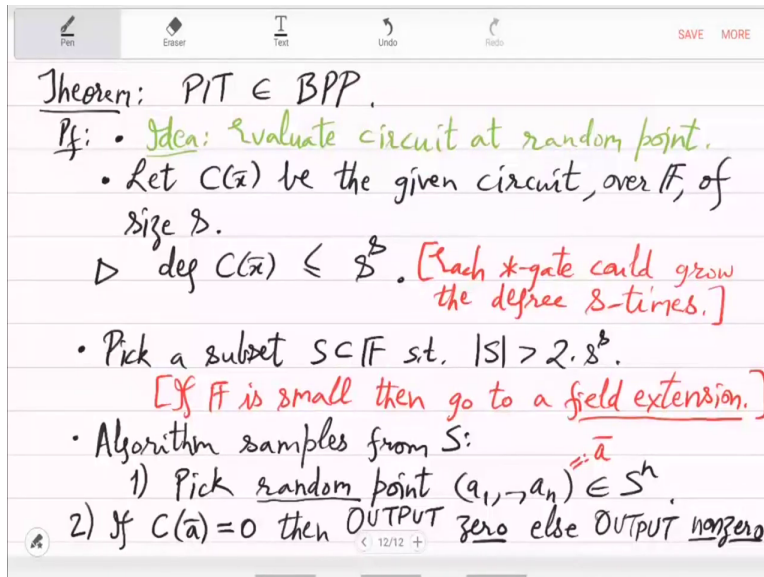 Pen Eraser Text Undo Redo SAVE MORE
Theorem: PIT ∈ BPP.
Pf: • Idea: Evaluate circuit at random point.
• Let C(x̄) be the given circuit, over 𝔽, of
size s.
▷ deg C(x̄) ≤ s^s. [Each *-gate could grow
the degree s-times.]
• Pick a subset S⊂𝔽 s.t. |S| > 2.s^s.
[If 𝔽 is small then go to a field extension.]
• Algorithm samples from S:
1) Pick random point (a₁,⇁aₙ) =: ā ∈ Sⁿ.
2) If C(ā)=0 then OUTPUT zero else OUTPUT nonzero
< 12/12 +